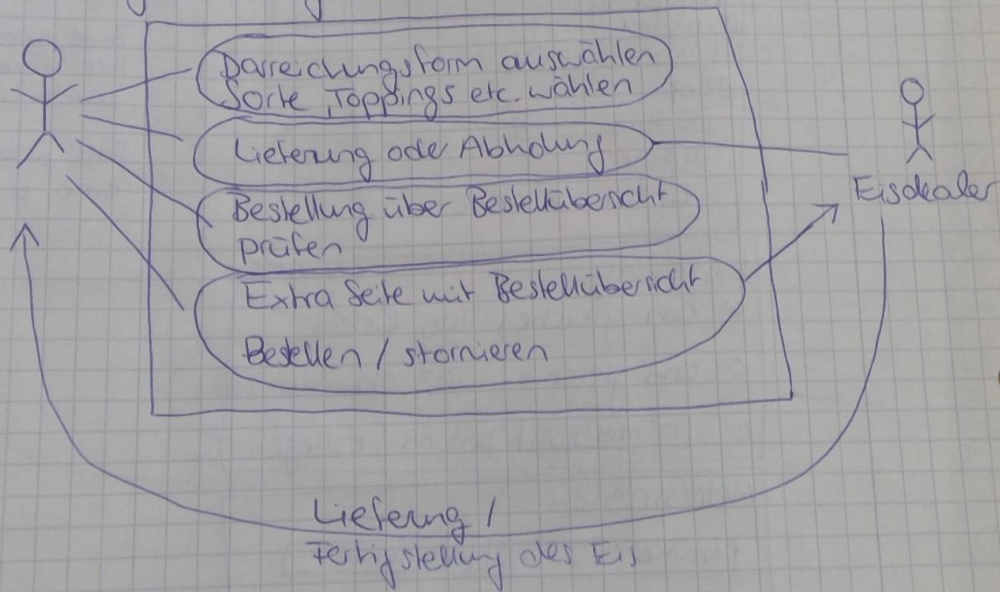 Darreichungsform auswählen
Sorte, Toppings etc. wählen
Lieferung oder Abholung
Eisdealer
Bestellung über Bestellübersicht
prüfen
Extra Seite mit Bestellübersicht
Bestellen / stornieren
Lieferung /
Fertigstellung des Eis